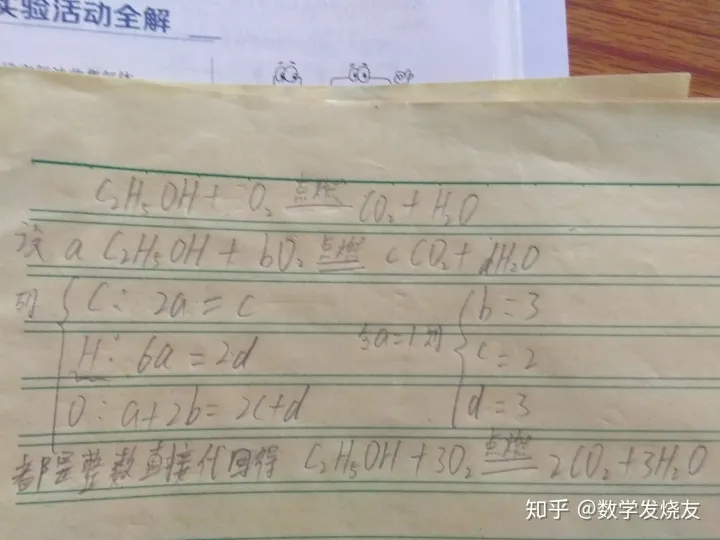 实验活动全解
C₂H₅OH + O₂ 点燃 CO₂ + H₂O
设 a C₂H₅OH + bO₂ 点燃 cCO₂ + dH₂O
则 { C: 2a = c
H: 6a = 2d
O: a+2b = 2c+d
令a=1 则 { b = 3
c = 2
d = 3
都是整数直接代回得 C₂H₅OH + 3O₂ 点燃 2CO₂ + 3H₂O
知乎 @数学发烧友